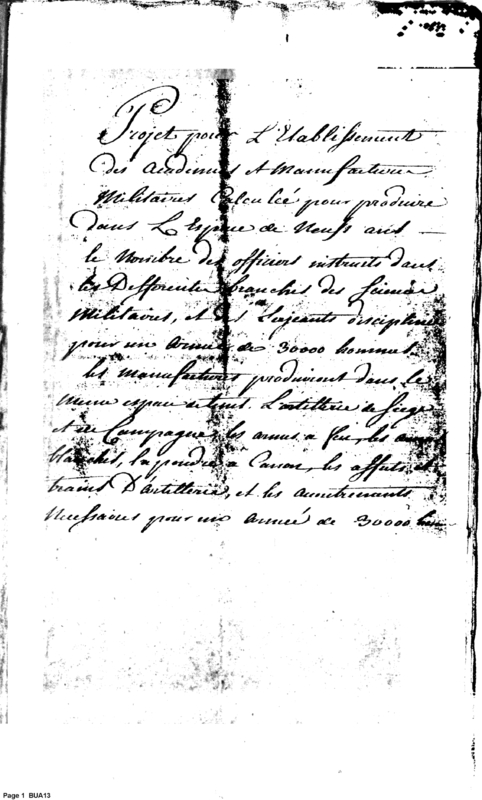 Projet pour L'Etablissement
des academies et Manufactures
Militaires Calculée pour produire
dans L'Espace de Neuff ans
le Nombre des officiers instruits dans
les Differentes branches des Science
Militaires, et des Sergeants disciplinés
pour un Armée de 30000 hommes.
les manufactures produiront dans le
meme espace de tems. L'artillerie de Siege
et de Campagne, les armes a feu, les armes
blanches, la poudre à Canon, les affuts, et
trains D'artillerie, et les
Necessaires pour un Armeé de 30000 hom
Page 1 BUA13